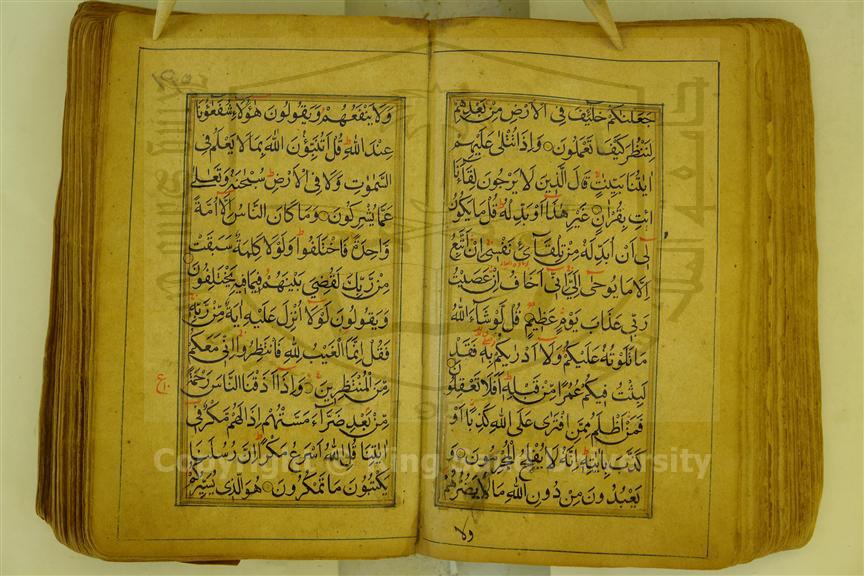 جعلنكم خلئف فى الارض من بعدهم
لننظر كيف تعملون واذا تتلى عليهم
اياتنا بينت قال الذين لا يرجون لقاءنا
ائت بقران غير هذا او بدله قل ما يكون
لى ان ابدله من تلقائ نفسى ان اتبع
الا ما يوحى الى انى اخاف ان عصيت
ربى عذاب يوم عظيم قل لو شاء الله
ما تلوته عليكم ولا ادريكم به فقد
لبثت فيكم عمرا من قبله افلا تعقلون
فمن اظلم ممن افترى على الله كذبا او
كذب بايته انه لا يفلح المجرمون و
يعبدون من دون الله ما لا يضرهم
ولا
ولا ينفعهم ويقولون هؤلاء شفعاؤنا
عند الله قل اتنبؤن الله بما لا يعلم فى
السموت ولا فى الارض سبحنه وتعلى
عما يشركون وما كان الناس الا امة
واحدة فاختلفوا ولولا كلمة سبقت
من ربك لقضى بينهم فيما فيه يختلفون
ويقولون لولا انزل عليه اية من ربه
فقل انما الغيب لله فانتظروا انى معكم
من المنتظرين واذا اذقنا الناس رحمة
من بعد ضراء مستهم اذا لهم مكر فى
اياتنا قل الله اسرع مكرا ان رسلنا
يكتبون ما تمكرون هو الذى يسيركم
Copyright © King Saud University